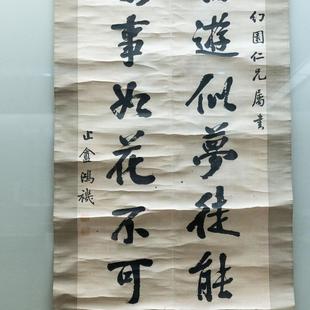 幻園仁兄属書
遊似夢徒能
事如花不可
止盦鴻禨